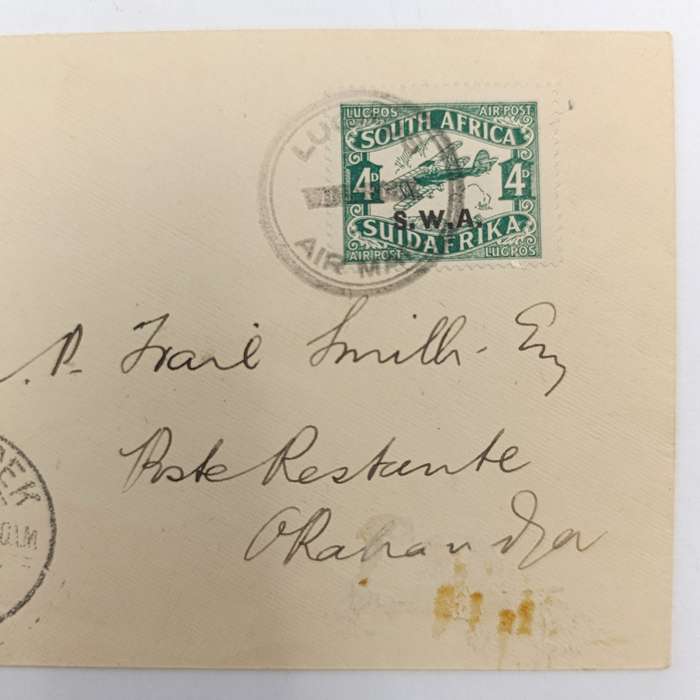 LUGPOS AIR POST
SOUTH AFRICA
4D 4D
S.W.A.
SUIDAFRIKA
AIR POST LUGPOS
AIR MAIL
P. Trail Smith - Esq
Poste Restante
Okahandja